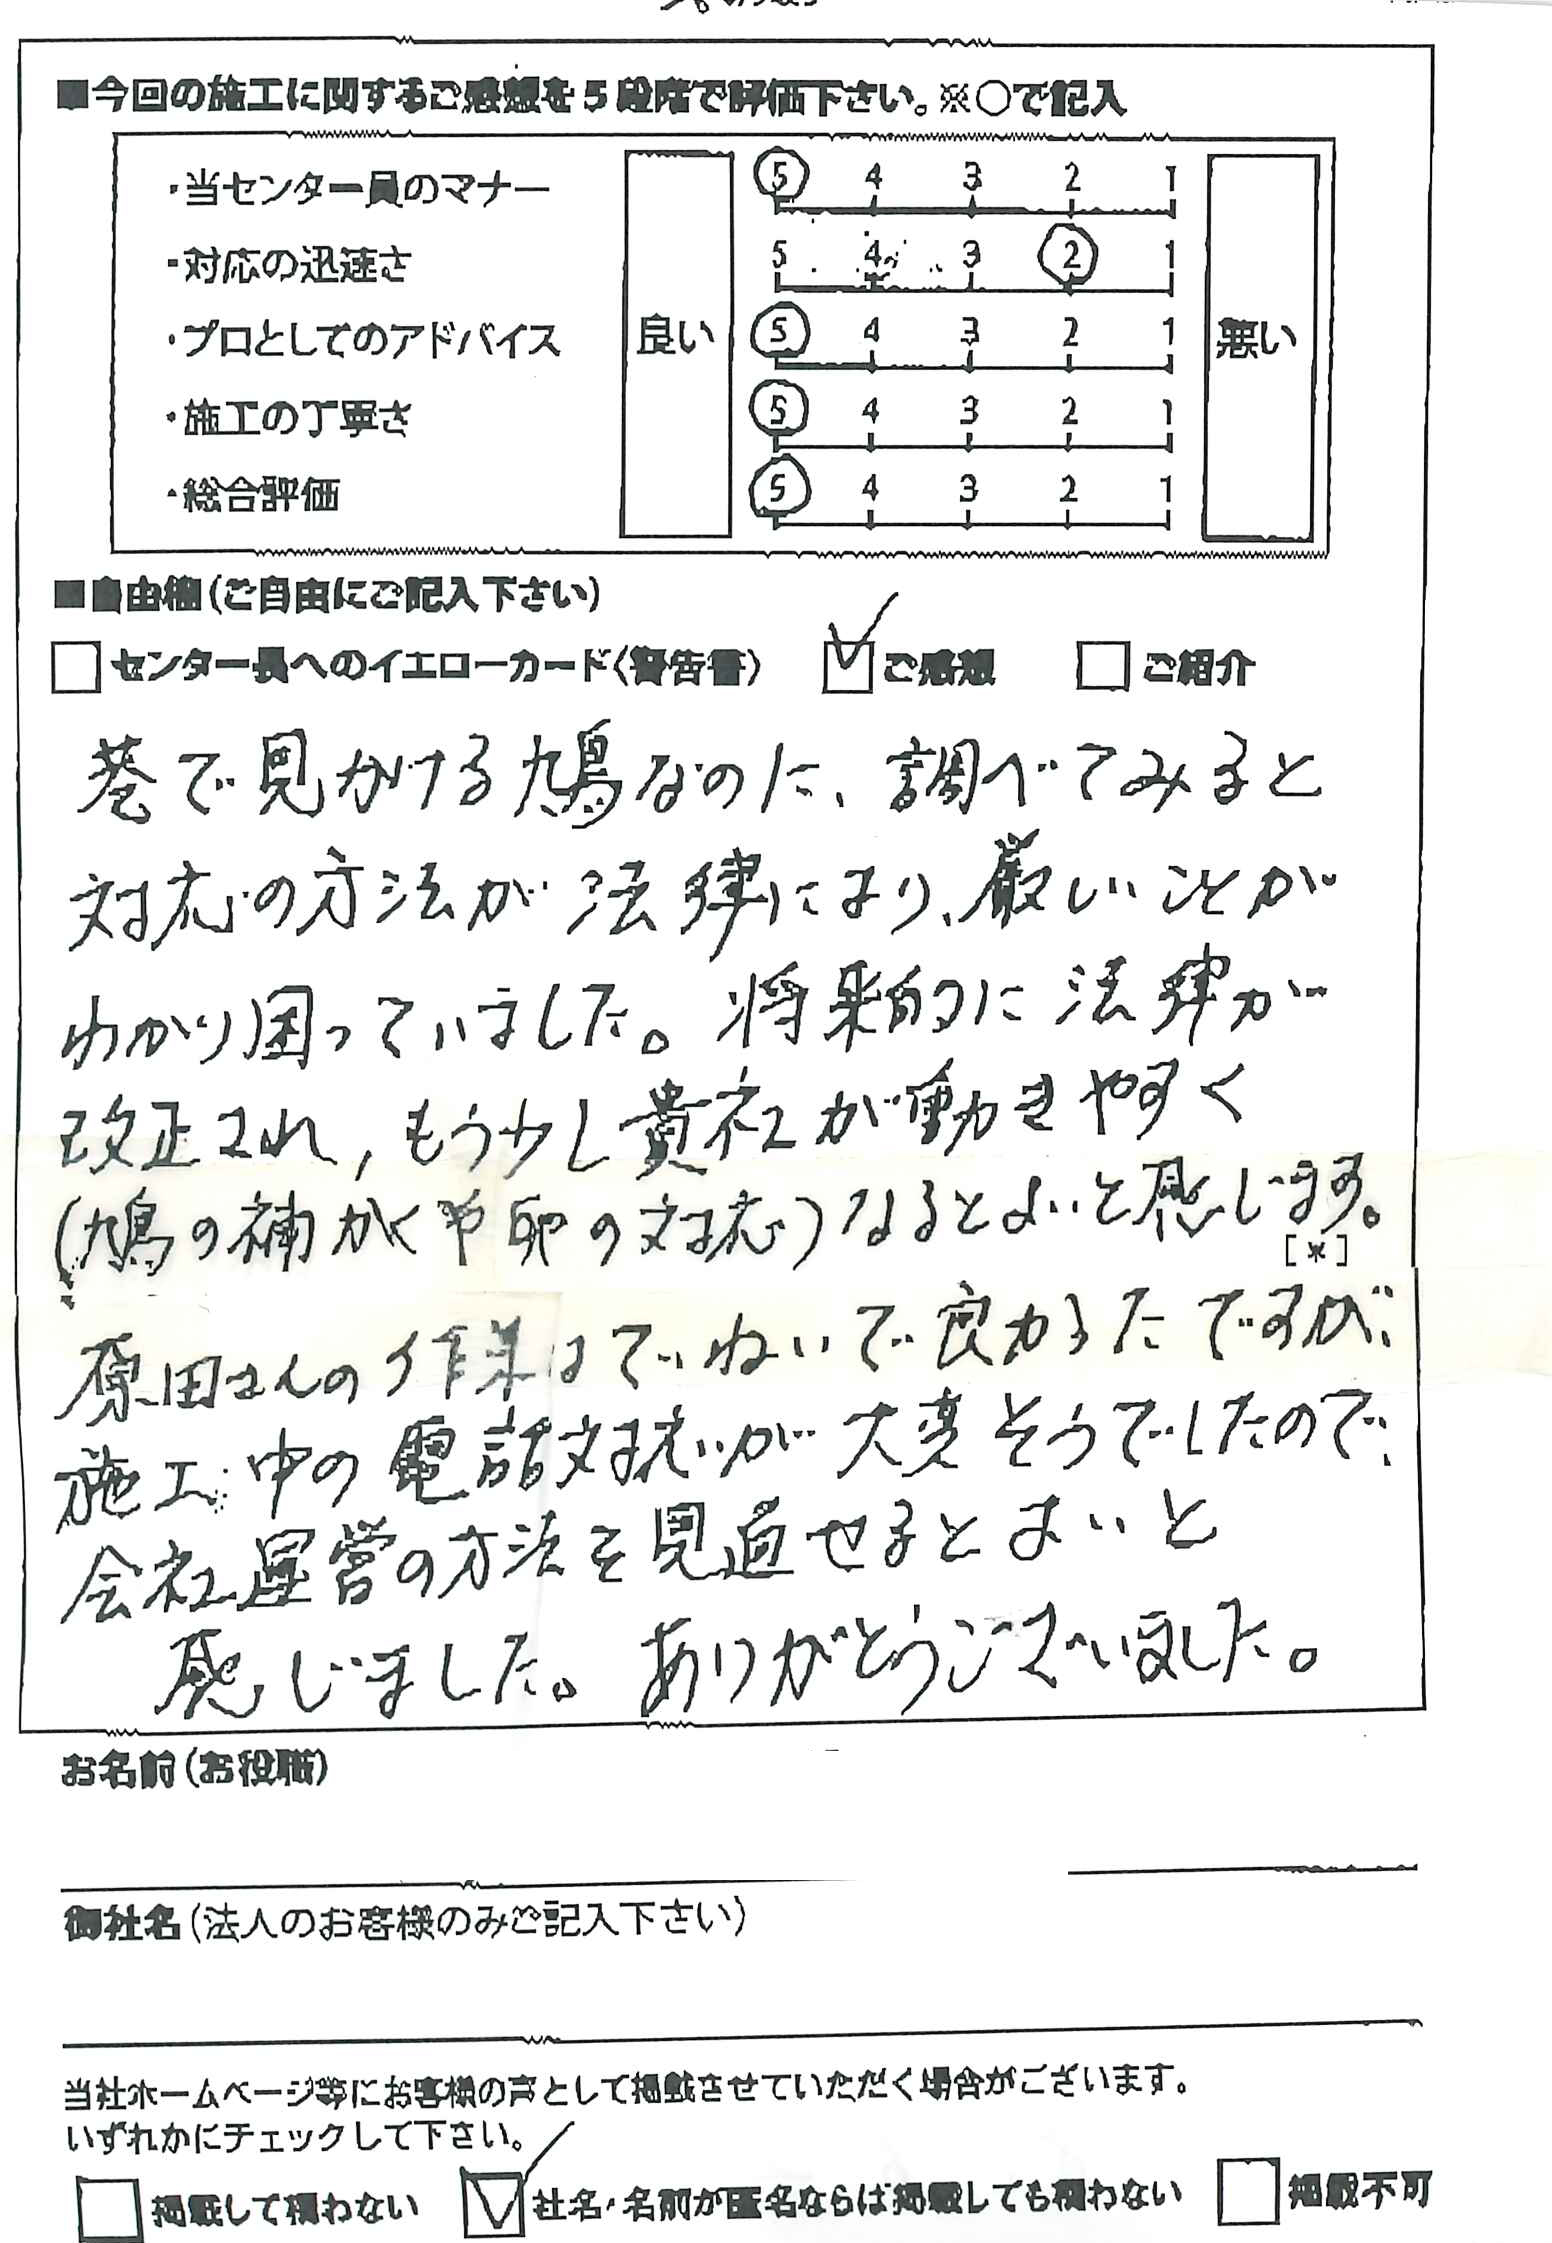 ■今回の施工に関するご感想を5段階で評価下さい。※○で記入
・当センター員のマナー 5 4 3 2 1
・対応の迅速さ 5 4 3 2 1
・プロとしてのアドバイス 良い 5 4 3 2 1 悪い
・施工の丁寧さ 5 4 3 2 1
・総合評価 5 4 3 2 1
■自由欄(ご自由にご記入下さい)
センター長へのイエローカード〈警告書〉 ご感想 ご紹介
巷で見かける鳩なのに、調べてみると
対応の方法が法律により、厳しいことが
わかり困っていました。将来的に法律が
改正され,もう少し貴社が動きやすく
(鳩の補かくや卵の対応)なるとよいと感じます。
[*]
原田さんの作業はていねいで良かったですが、
施工中の電話対応が大変そうでしたので、
会社運営の方法を見直せるとよいと
感じました。ありがとうございました。
お名前(お役職)
御社名(法人のお客様のみご記入下さい)
当社ホームページ等にお客様の声として掲載させていただく場合がございます。
いずれかにチェックして下さい。
掲載して構わない 社名・名前が匿名ならば掲載しても構わない 掲載不可